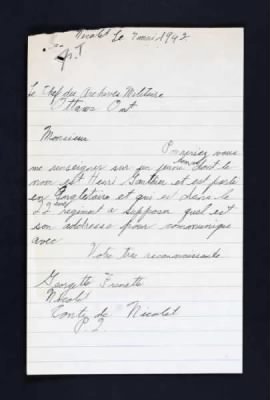 Nicolet Le 7 mai 1942
Le Chef des Archives Militaire
Ottawa Ont
Monsieur
Pourriez vous
me renseigner sur un jeune homme dont le
nom est Henri Gauthier et est parti
en Engletaire et qui é dans le
22 ième regiment a supposon quel est
son addresse pour communique
avec
Votre tres reconnaissante
Georgette Frenette
Nicolet
Conty de Nicolet